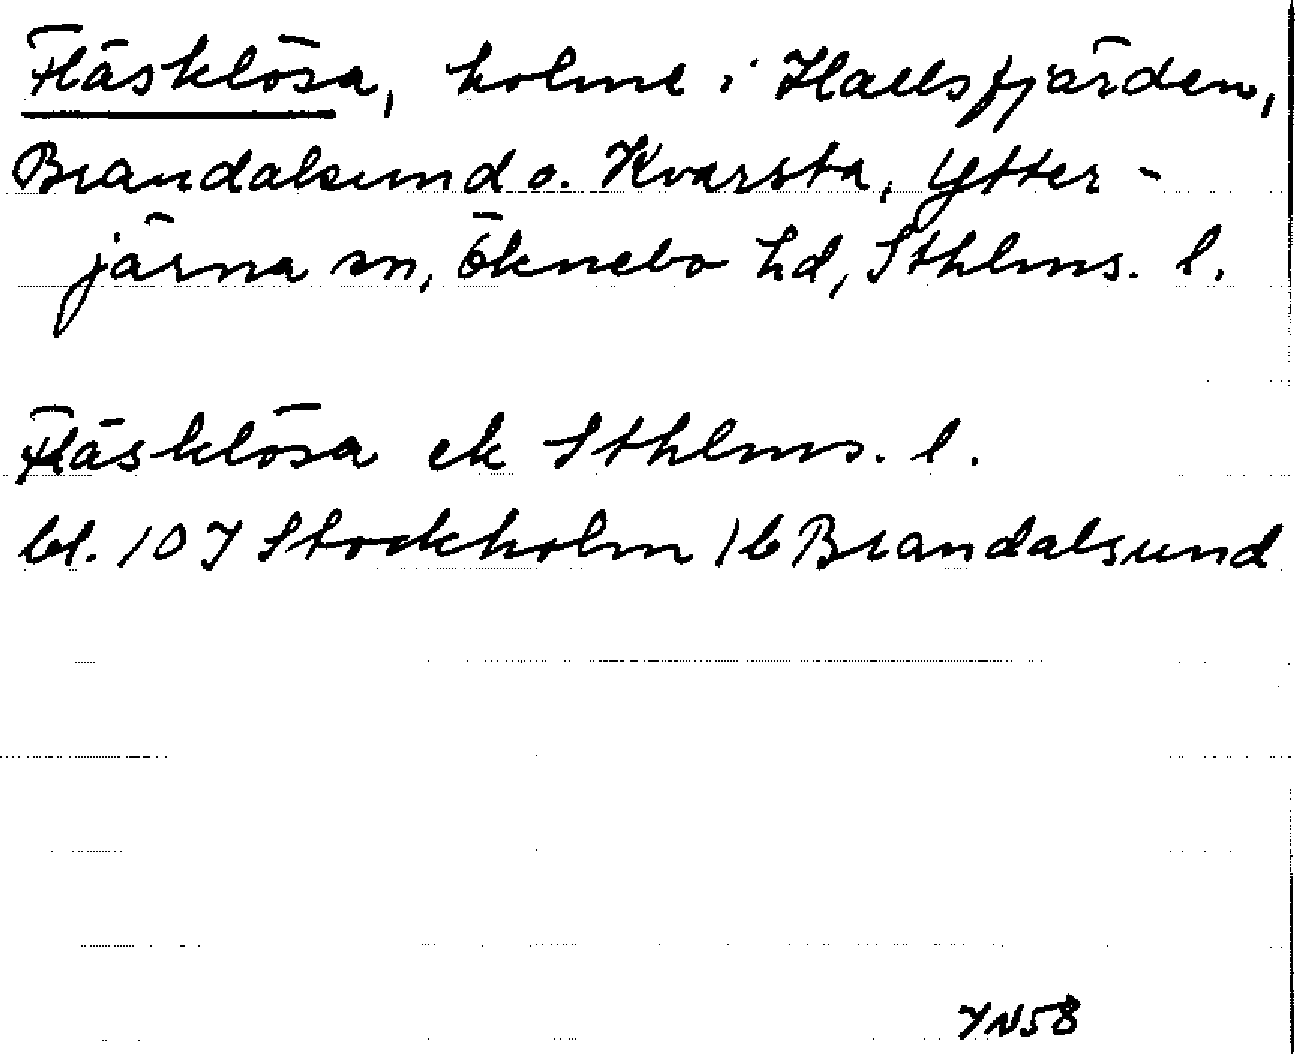 Fläsklösa, holme i Hallsfjärden,
Brandalsund o. Kvarsta, Ytter-
järna sn, Öknebo hd, Sthlms. l.
Fläsklösa ek Sthlms. l.
bl. 10 I Stockholm 1b Brandalsund
YN58